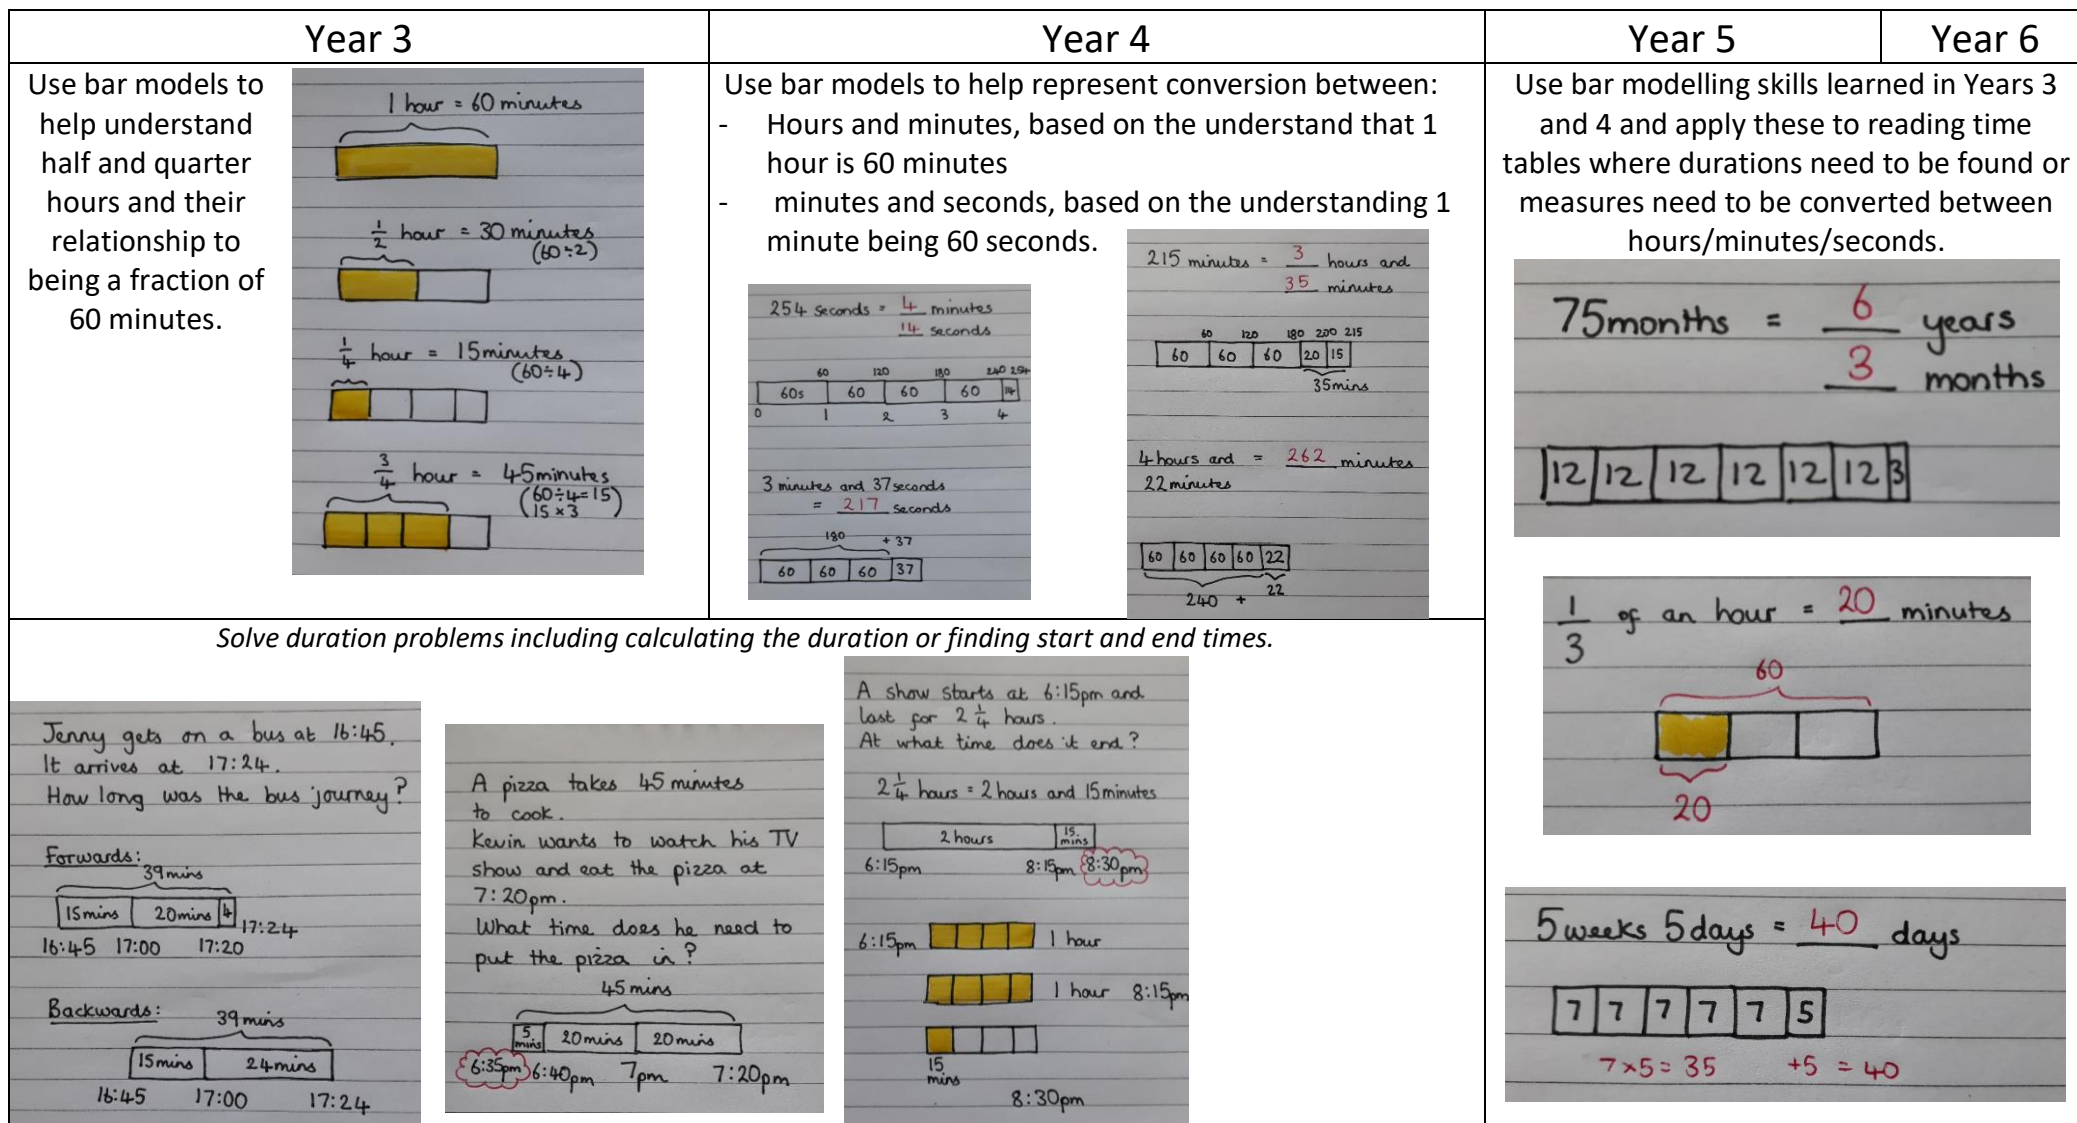 Year 3
Year 4
Year 5
Year 6
Use bar models to
help understand
half and quarter
hours and their
relationship to
being a fraction of
60 minutes.
1 hour = 60 minutes
1/2 hour = 30 minutes
(60÷2)
1/4 hour = 15minutes
(60÷4)
3/4 hour = 45minutes
(60÷4=15)
(15 × 3)
Use bar models to help represent conversion between:
- Hours and minutes, based on the understand that 1
hour is 60 minutes
- minutes and seconds, based on the understanding 1
minute being 60 seconds.
254 seconds = 4 minutes
14 seconds
60 120 180 240 254
60s 60 60 60 14
0 1 2 3 4
3 minutes and 37 seconds
= 217 seconds
180 + 37
60 60 60 37
215 minutes = 3 hours and
35 minutes
60 120 180 200 215
60 60 60 20 15
35mins
4 hours and = 262 minutes
22 minutes
60 60 60 60 22
240 + 22
Use bar modelling skills learned in Years 3
and 4 and apply these to reading time
tables where durations need to be found or
measures need to be converted between
hours/minutes/seconds.
75months = 6 years
3 months
12 12 12 12 12 12 3
1/3 of an hour = 20 minutes
60
20
5 weeks 5 days = 40 days
7 7 7 7 7 5
7×5 = 35 +5 = 40
Solve duration problems including calculating the duration or finding start and end times.
Jenny gets on a bus at 16:45.
It arrives at 17:24.
How long was the bus journey?
Forwards:
39mins
15mins 20mins 4
17:24
16:45 17:00 17:20
Backwards:
39mins
15mins 24mins
16:45 17:00 17:24
A pizza takes 45 minutes
to cook.
Kevin wants to watch his TV
show and eat the pizza at
7:20pm.
What time does he need to
put the pizza in?
45 mins
5 mins 20mins 20mins
6:35pm 6:40pm 7pm 7:20pm
A show starts at 6:15pm and
last for 2 1/4 hours.
At what time does it end?
2 1/4 hours = 2 hours and 15minutes
2 hours 15. mins
6:15pm 8:15pm 8:30pm
6:15pm 1 hour
1 hour 8:15pm
15
mins
8:30pm